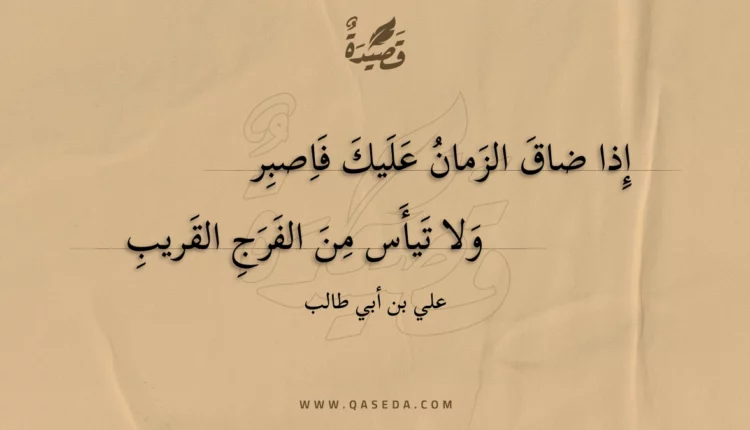 قَصِيدَةٌ
إِذا ضاقَ الزَمانُ عَلَيكَ فَاِصبِر
وَلا تَيأَس مِنَ الفَرَجِ القَريبِ
علي بن أبي طالب
WWW.QASEDA.COM